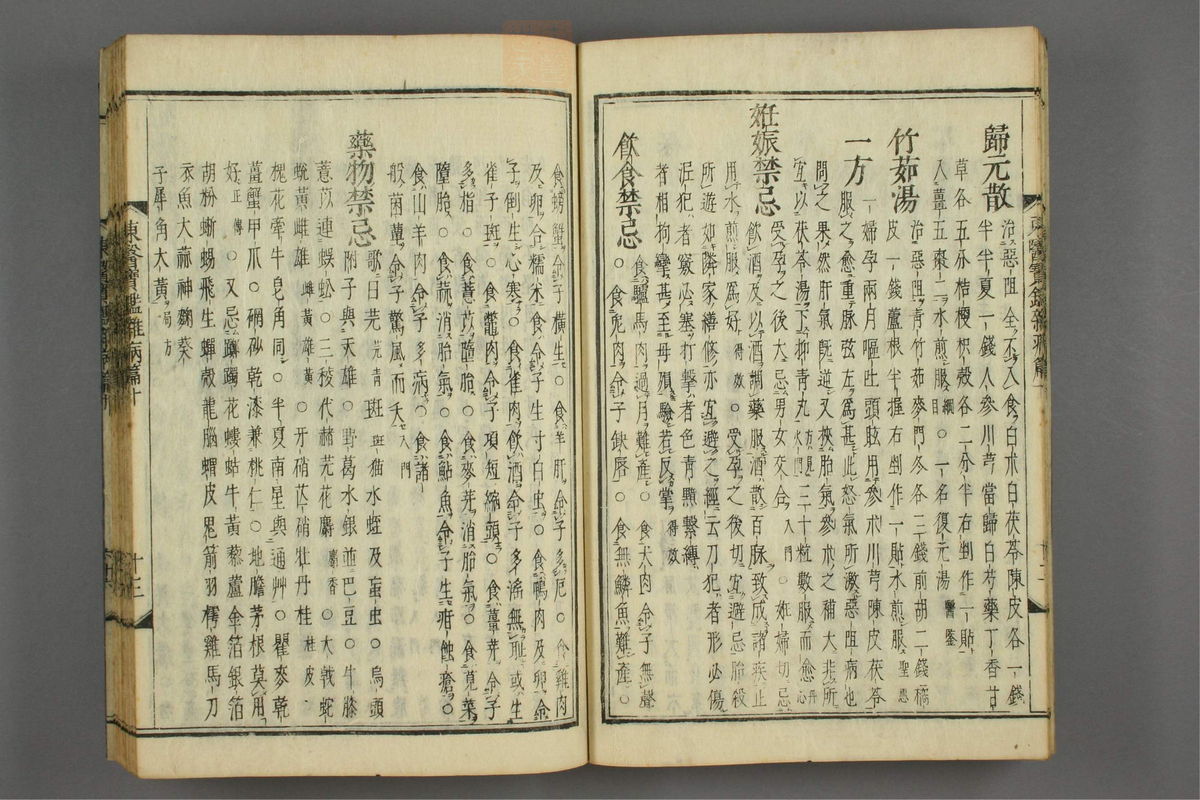 歸元散 治惡阻全不入食白朮白茯苓陳皮各一錢
半半夏一錢人參川芎當歸白芍藥丁香甘
草各五分桔梗枳殼各二分半右剉作一貼
入薑五棗二水煎服綱目○一名復元湯醫鑒
竹茹湯 治惡阻靑竹茹麥門冬各三錢前胡二錢橘
皮一錢蘆根半握右剉作一貼水煎服聖惠
一方 一婦孕兩月嘔吐頭眩用參朮川芎陳皮茯苓
服之愈重脉弦左爲甚此怒氣所激惡阻病也
問之果然肝氣旣逆又挾胎氣參朮之補大非所
宜以茯苓湯下抑靑丸方見火門二十粒數服而愈丹心
姙娠禁忌 受孕之後大忌男女交合入門○姙婦切忌
飮酒及以酒調藥服酒散百脉致成諸疾止
用水煎服爲好得效○受孕之後切宜避忌胎殺
所遊如隣家繕修亦宜避之經云刀犯者形必傷
泥犯者竅必塞打擊者色靑黯繫縛
者相拘攣甚至母殞驗若反掌得效
飮食禁忌 食驢馬肉過月難產○食犬肉令子無聲
○食兎肉令子缺唇○食無鱗魚難產○
食螃蟹令子橫生○食羊肝令子多厄○食雞肉
及卵合糯米食令子生寸白虫○食鴨肉及卵令
子倒生心寒○食雀肉飮酒令子多淫無耻或生
雀子斑○食鼈肉令子項短縮頭○食薑芽令子
多指○食薏苡墮胎○食麥芽消胎氣○食莧菜
墮胎○食蒜消胎氣○食鮎魚令子生疳蝕瘡○
食山羊肉令子多病○食諸
般菌蕈令子驚風而夭入門
藥物禁忌 歌曰芫芫靑斑斑猫水蛭及虻虫○烏頭
附子與天雄○野葛水銀並巴豆○牛膝
薏苡連蜈蚣○三稜代赭芫花麝麝香○大戟蛇
蛻黃雌雄雌黃雄黃○牙硝芒硝牡丹桂桂皮○
槐花牽牛皂角同○半夏南星與通艸○瞿麥乾
薑蟹甲爪○硇砂乾漆兼桃仁○地膽茅根莫用
好正傳○又忌躑躅花螻蛄牛黃藜蘆金箔銀箔
胡粉蜥蜴飛生蟬殼龍腦蝟皮鬼箭羽樗雞馬刀
衣魚大蒜神麴葵
子犀角大黃局方
東醫寶鑑雜病篇十
十三